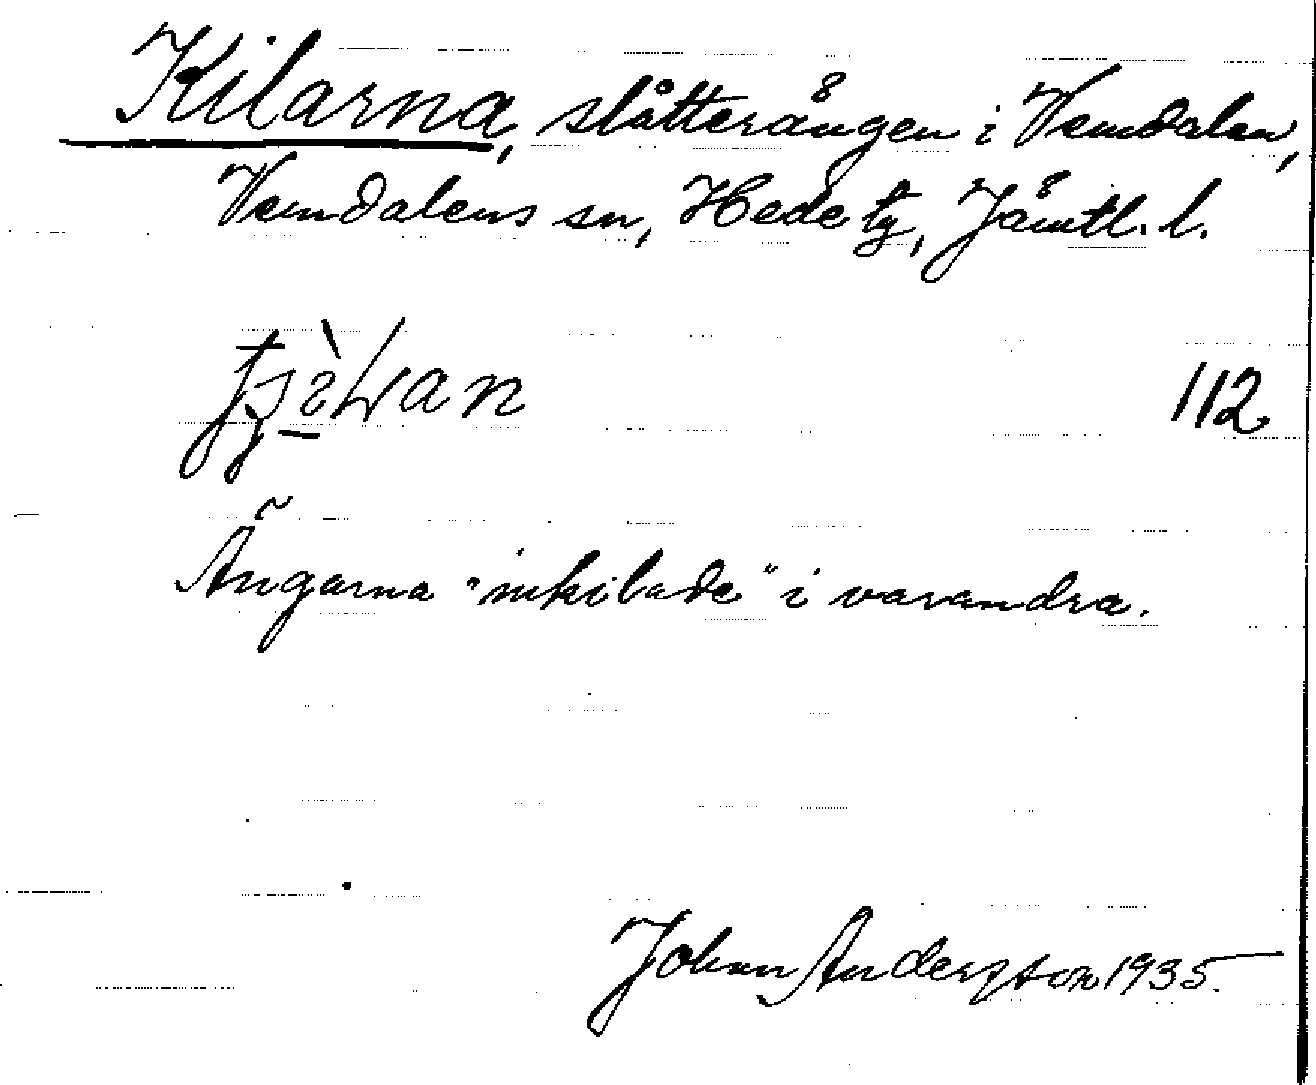 Kilarna, slåtterängen i Vemdalen,
Vemdalens sn, Hede tg, Jämtl. l.
112
Ängarna "inkilade" i varandra.
Johan Andersson 1935.